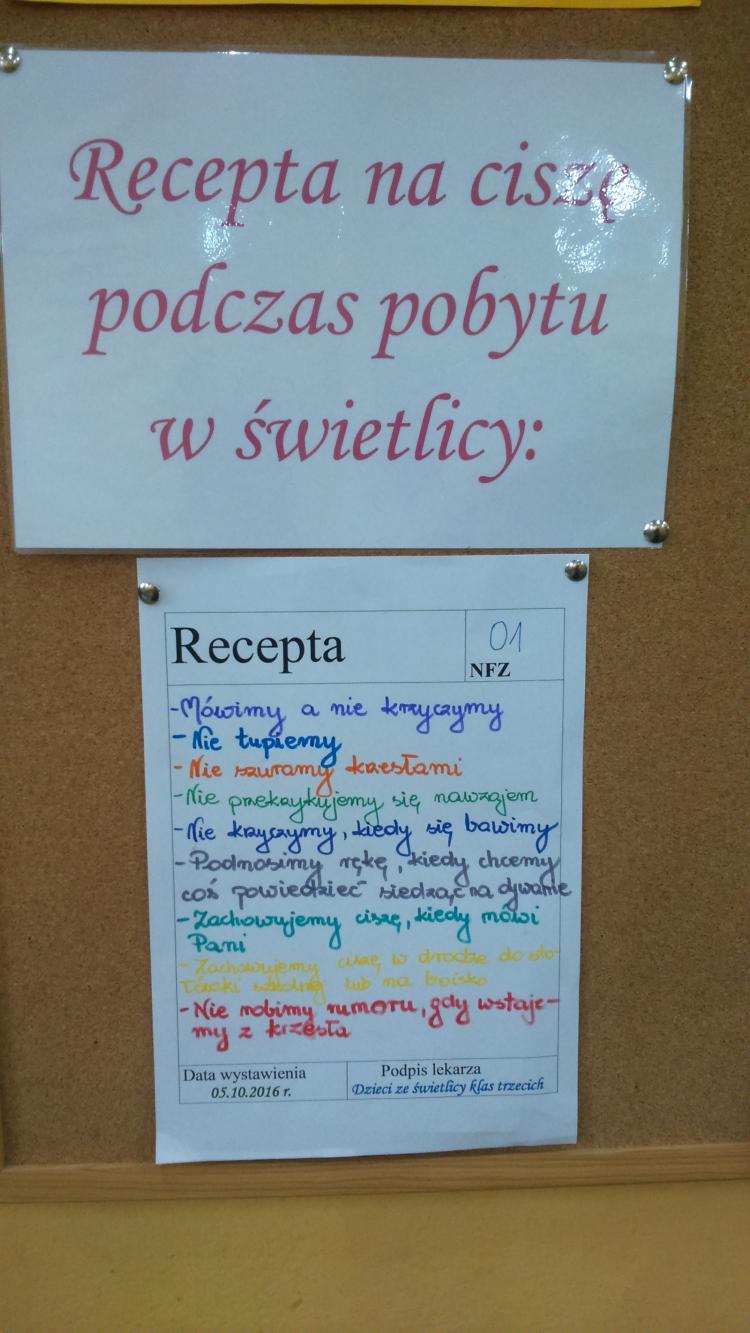 Recepta na ciszę
podczas pobytu
w świetlicy:
Recepta
01
NFZ
-Mówimy a nie krzyczymy
- Nie tupiemy
- Nie szuramy krzesłami
-Nie przekrzykujemy się nawzajem
-Nie krzyczymy, kiedy się bawimy
-Podnosimy rękę, kiedy chcemy
coś powiedzieć siedząc na dywanie
-Zachowujemy ciszę, kiedy mówi
Pani
-Zachowujemy ciszę w drodze do sto-
łówki szkolnej lub na boisko
-Nie robimy rumoru, gdy wstaje-
my z krzesła
Data wystawienia
05.10.2016 r.
Podpis lekarza
Dzieci ze świetlicy klas trzecich